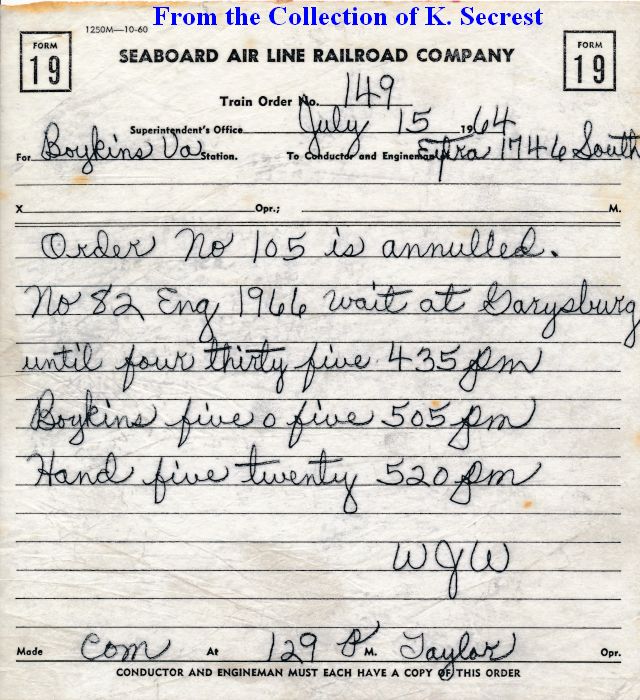 From the Collection of K. Secrest
1250M—10-60
FORM 19
SEABOARD AIR LINE RAILROAD COMPANY
FORM 19
Train Order No. 149
Superintendent's Office July 15 1964
For Boykins Va Station. To Conductor and Engineman Extra 1746 South
X Opr.; M.
Order No 105 is annulled.
No 82 Eng 1966 wait at Garysburg
until four thirty five 435 pm
Boykins five o five 505 pm
Hand five twenty 520 pm
WJW
Made Com At 129 P M. Taylor Opr.
CONDUCTOR AND ENGINEMAN MUST EACH HAVE A COPY OF THIS ORDER